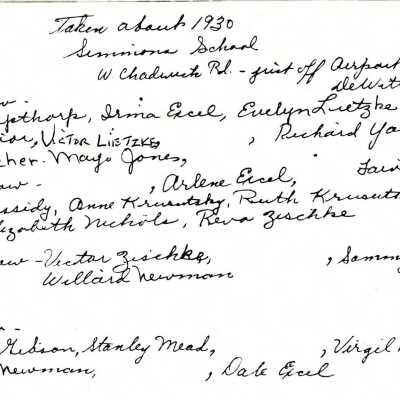 Taken about 1930
Simmons School
W Chadwick Rd. - just off Airport
DeWit
ow -
pthorp, Irma Excel, Evelyn Lietzke
ior, Victor Lietzke, , Richard Ya
cher - Mayo Jones,
ow - , Arlene Excel, Fair
assidy, Anne Krusutsky, Ruth Krusuts
lizabeth Nichols, Reva Zischke
ow - Victor Zischke, , Sammy
Willard Newman
-
Gibson, Stanley Mead, , Virgil
Newman, , Dale Excel